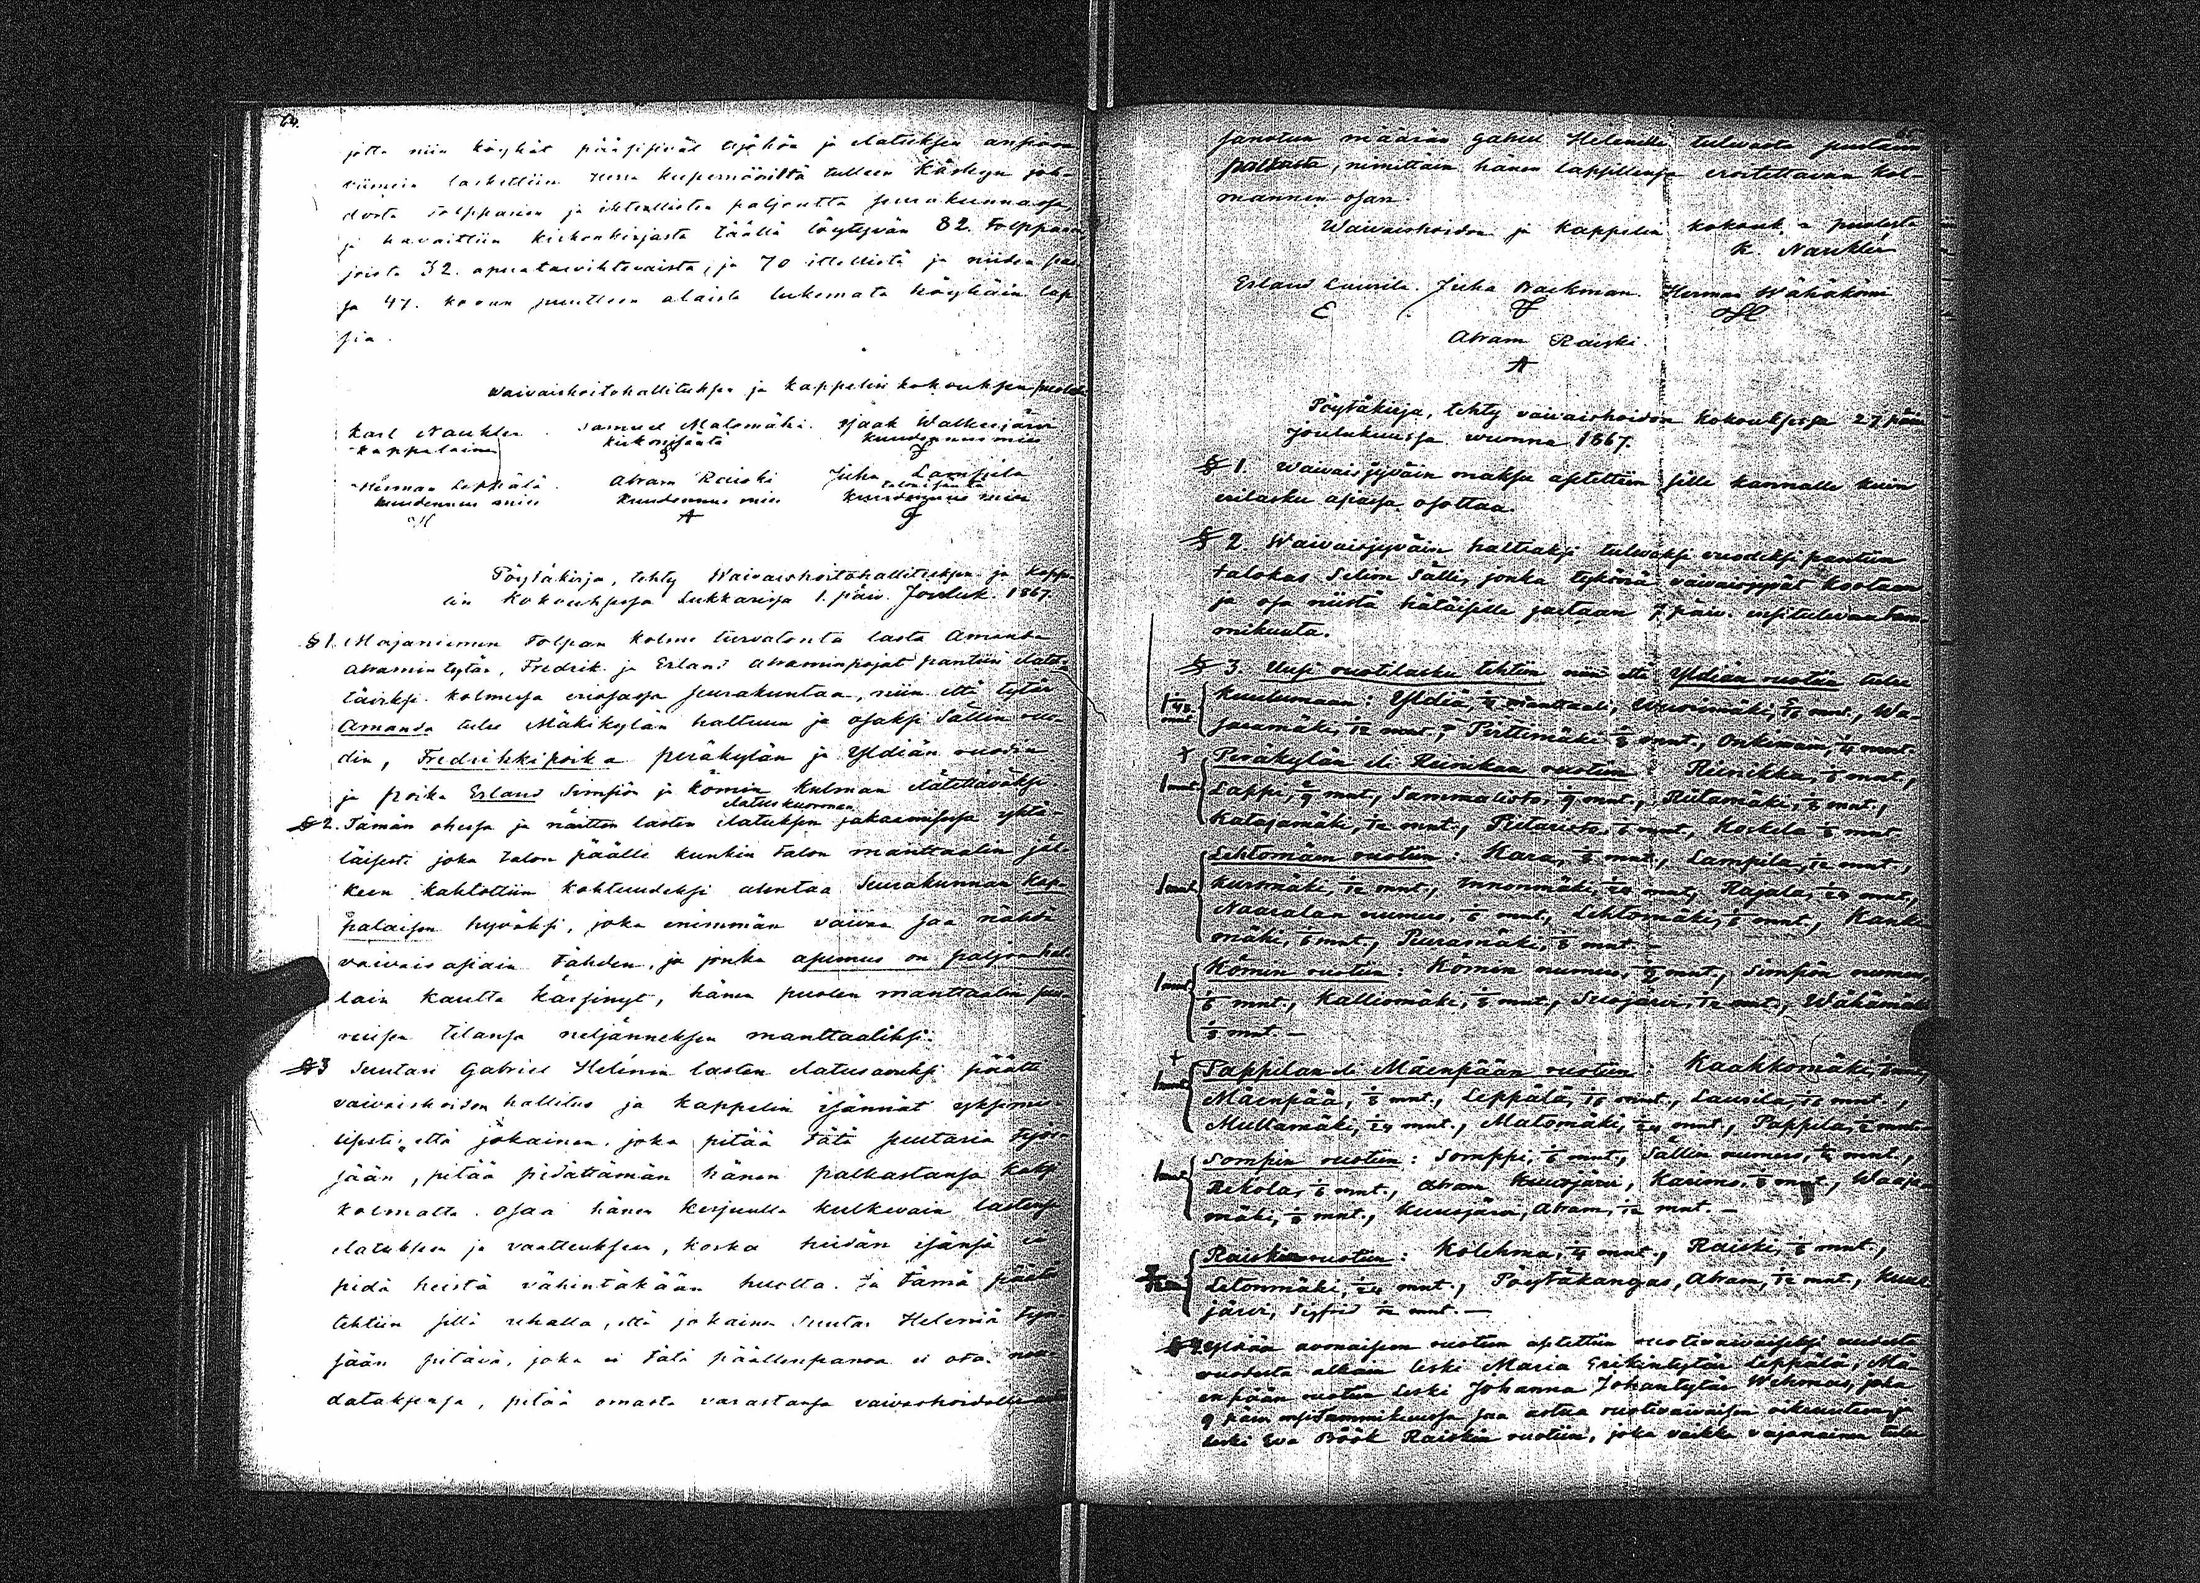 64.
jotta niin köyhät pääsisivät työhön ja elatuksen ansioon
viimein laskettiin Herra kupernööriltä tulleen Käskyn joh-
dosta tolpparien ja itsellisten paljoutta seurakunnassa
ja havaittiin kirkonkirjasta täällä löytyvän 82. tolpparia,
joista 32. apua tarvihtevaista, ja 70 itsellistä ja niiden
ja 47. kovan puutteen alaista lukematta köyhäin lap-
sia.
Waivaishoitohallituksen ja kappelin kokouksen puolesta
Karl Nauklér. Samuel Matomäki. Isaak Walkesjärvi
kappalainen kirkonisäntä kuudennus mies
Herman Leppälä. Abram Raiski Juha Lampila
talon isäntä
kuudennus mies kuudennus mies kuudennus mies
H A J
Pöytäkirja, tehty Waivaishoitohallituksen ja kappe-
lin kokouksessa Lukkarissa 1. päiv. Jouluk. 1867.
§ 1. Majaniemen tolpan kolme turvatonta lasta Amanda
Abramin tytär, Fredrik ja Erland Abraminpojat pantiin elätet-
täviksi kolmessa eriosassa seurakuntaa, niin että tytär
Amanda tulee Mäkikylän haltuun ja osaksi Sällin ruo-
din, Fredrikki poika peräkylän ja Yldiän ruodin
ja poika Erland Sompin ja kömin kulman elätettäväksi
elatuskuorman
§ 2. Tämän ohessa ja näitten lasten elatuksen jakamisessa yhtä-
läisesti joka talon päälle kunkin talon manttaalin jäl-
keen kahtottiin kohtuudeksi alentaa Seurakunnan kap-
palaisen hyväksi, joka enimmän vaivaa saa nähdä
vaivaisasiain tähden, ja jonka asumus on paljon hal-
lain kautta kärsinyt, hänen puolen manttaalin suu-
ruisen tilansa neljänneksen manttaaliksi.
§ 3 Suutari Gabriel Helénin lasten elatusavuksi päätti
vaivaishoidon hallitus ja kappelin isännät yksimie-
lisesti, että jokainen, joka pitää tätä suutaria työs-
sään, pitää pidättämän hänen palkastansa kaksi
kolmatta osaa hänen kerjuulla kulkevain lastensa
elatukseen ja vaatteukseen, koska heidän isänsä ei
pidä heistä vähintäkään huolta. Ja tämä päätös
tehtiin sillä uhalla, että jokainen Suutar Heleniä työs-
sään pitävä, joka ei tätä päällenpanoa ei ota nou-
dataksensa, pitää omasta varastansa vaivaishoidolle
65.
sanotun määrän Gabriel Helenille tulevasta suutarin
palkasta, nimittäin hänen lapsillensa eroitettavan kol-
mannen osan.
Waivaishoidon ja Kappelin kokouk:n puolesta
K. Nauklér
Erland Lauvila. Juha Backman. Herman Wähäkömi
E J H
Abram Raiski.
A
Pöytäkirja, tehty vaivaishoidon kokouksessa 27 päiv
Joulukuussa vuonna 1867.
§ 1. Waivaisjyväin maksu asetettiin sille kannalle kuin
erilasku asiassa osottaa.
§ 2. Waivaisjyväin haltiaksi tulevaksi vuodeksi pantiin
talokas Selim Sälli, jonka tykönä vaivaisjyvät kootaan
ja osa niistä hätäisille jaetaan 7 päiv. ensitulevaa tam-
mikuuta.
§ 3. Uusi ruotilasku tehtiin niin että Yldiän ruotiin tulee
kuulumaan: Yldiä, manttaali, Wuorimäki, mnt., Wa-
saramäki, 1/12 mnt., Pirttimäki mnt., Onkimaa, mnt.
Peräkylän eli Riinikan ruotiin: Riinikka, mnt.,
Lappi, mnt., Sammalisto, mnt., Riitamäki, mnt.,
Katajamäki, 1/12 mnt., Pietaristo, mnt., Koskela mnt
Lehtomäen ruotiin: Kara, mnt., Lampila, 1/12 mnt.,
kuromäki, 1/12 mnt., Innonmäki, 1/24 mnt., Rajala, 1/24 mnt.,
Naaralan numero, mnt., Lehtomäki, mnt., Kank-
mäki, mnt., Puuramäki, mnt. —
Kömin ruotiin: Kömin numero, mnt., Sompin numero,
mnt., Kalliomäki, mnt., Suojärvi, 1/12 mnt., Wähämäki
mnt. —
Pappilan eli Mäenpään ruotiin: Kaakkomäki,
Mäenpää, mnt., Leppälä, mnt., Laurila, mnt.,
Multamäki, 1/24 mnt., Matomäki, 1/24 mnt., Pappila, mnt.
Sompin ruotiin: Somppi, mnt., Sällin numero, mnt.,
Rekola, mnt., Abram Kuusjärvi, Karimo, mnt., Waaja-
mäki, mnt., Kuusjärvi, Abram, 1/12 mnt. —
Raiskin ruotiin: Kolehma, mnt., Raiski, mnt.,
Letonmäki, 1/24 mnt., Pöytäkangas, Abram, 1/12 mnt., Kuus-
järvi, Sigfrid 1/12 mnt. —
§ 4. avonaiseen ruotiin asetettiin ruotivaivaiseksi uudesta
vuodesta alkain leski Maria Erikintytär Leppälä, Mä-
enpään ruotiin leski Johanna Johantytär Wehmas, joka
9 päiv Tammikuussa saa astua ruotivaivaisen oikeuteen, ja
leski Eva Böök Raiskin ruotiin, joka vaikka vajanainen tulee